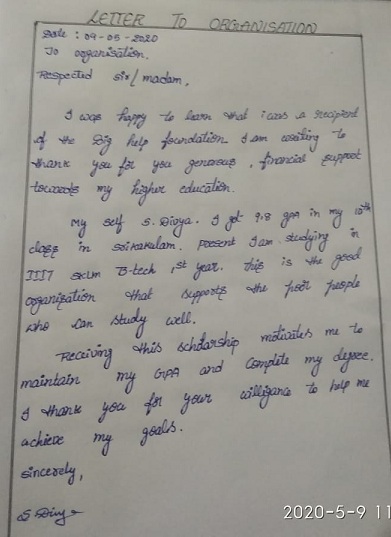 LETTER TO ORGANISATION
Date : 09-05-2020
To organisation,
Respected sir/madam,
I was happy to learn that i was a recipient
of the Dig help foundation. I am writing to
thank you for you generous, financial support
towards my higher education.
My self S. Divya. I got 9.8 gpa in my 10th
class in srikakulam. present I am studying in
IIIT SKLM B-tech 1st year. this is the good
organization that supports the poor people
who can study well.
Receiving this scholarship motivates me to
maintain my GPA and complete my degree.
I thank you for your willigance to help me
achieve my goals.
sincerely,
S. Divya
2020-5-9 11